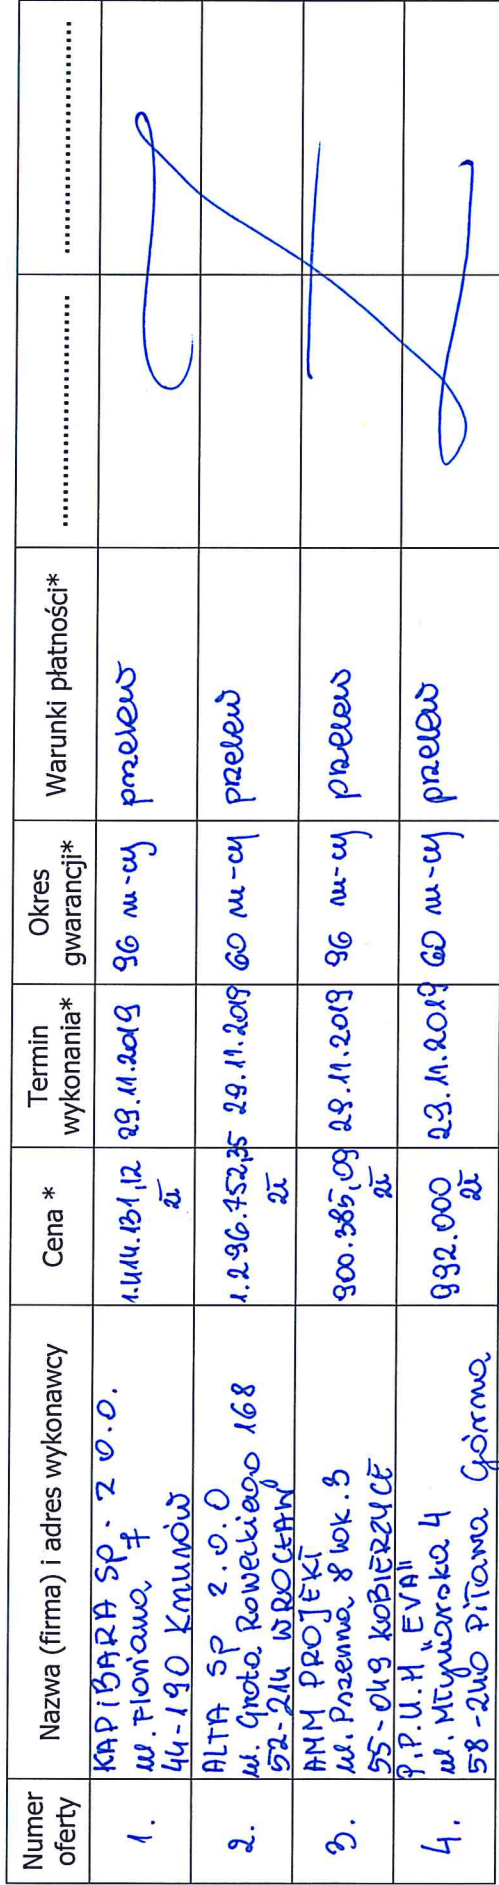 Numer oferty | Nazwa (firma) i adres wykonawcy | Cena * | Termin wykonania* | Okres gwarancji* | Warunki płatności* | .................................... | ....................................
1. | KAPIBARA SP. Z O.O. ul. Floriana 7 44-190 Knurów | 1.414.131,12 zł | 29.11.2019 | 96 m-cy | przelew
2. | ALTA SP Z.O.O ul. Grota Roweckiego 168 52-214 WROCŁAW | 1.296.752,35 zł | 29.11.2019 | 60 m-cy | przelew
3. | AMM PROJEKT ul. Pszenna 8 lok. 3 55-049 KOBIERZYCE | 900.385,09 zł | 29.11.2019 | 96 m-cy | przelew
4. | P.P.U.H "EVA" ul. Młynarska 4 58-240 Piława Górna | 992.000 zł | 29.11.2019 | 60 m-cy | przelew